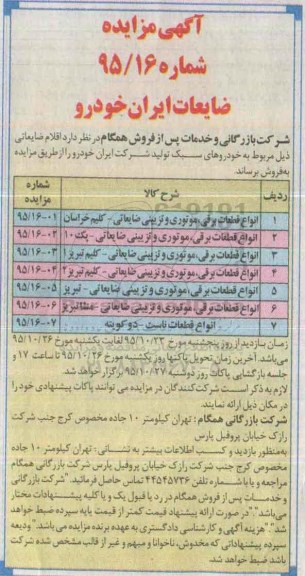 آگهی مزایده
شماره ۹۵/۱۶
ضایعات ایران خودرو
شرکت بازرگانی و خدمات پس از فروش همگام در نظر دارد اقلام ضایعاتی
ذیل مربوط به خودروهای سبک تولید شرکت ایران خودرو را از طریق مزایده
به‌فروش برساند.
ردیف شرح کالا شماره مزایده
۱ انواع قطعات برقی، موتوری و تزیینی ضایعاتی - کلیم خراسان ۹۵/۱۶-۰۱
۲ انواع قطعات برقی، موتوری و تزیینی ضایعاتی - پک ۱۰ ۹۵/۱۶-۰۲
۳ انواع قطعات برقی، موتوری و تزیینی ضایعاتی - کلیم تبریز ۱ ۹۵/۱۶-۰۳
۴ انواع قطعات برقی، موتوری و تزیینی ضایعاتی - کلیم تبریز ۲ ۹۵/۱۶-۰۴
۵ انواع قطعات برقی، موتوری و تزیینی ضایعاتی - تبریز ۹۵/۱۶-۰۵
۶ انواع قطعات برقی، موتوری و تزیینی ضایعاتی - ۹۵/۱۶-۰۶
۷ انواع قطعات تابست - دو کویته ۹۵/۱۶-۰۷
زمان بازدید از روز پنجشنبه مورخ ۹۵/۱۰/۲۳ لغایت یکشنبه مورخ ۹۵/۱۰/۲۶
می‌باشد. آخرین زمان تحویل پاکتها روز یکشنبه مورخ ۹۵/۱۰/۲۶ تا ساعت ۱۷ و
جلسه بازگشایی پاکات روز دوشنبه ۹۵/۱۰/۲۷ برگزار خواهد شد.
لازم به ذکر است شرکت‌کنندگان در مزایده می توانند پاکات پیشنهادی خود را
در مکان ذیل ارائه نمایند.
شرکت بازرگانی همگام: تهران کیلومتر ۱۰ جاده مخصوص کرج جنب شرکت
زاک خیابان پروفیل پارس
به‌منظور بازدید و کسب اطلاعات بیشتر به نشانی: تهران کیلومتر ۱۰ جاده
مخصوص کرج جنب شرکت زاک خیابان پروفیل پارس شرکت بازرگانی همگام
مراجعه و یا با شماره تلفن ۴۴۵۴۵۷۳۶ تماس حاصل فرمائید. "شرکت بازرگانی
و خدمات پس از فروش همگام در رد یا قبول یک و یا کلیه پیشنهادات مختار
می‌باشد" "در صورت ارائه پیشنهاد قیمت کمتر از قیمت پایه سپرده ضبط خواهد
شد" "هزینه آگهی و کارشناسی دادگستری به عهده برنده مزایده می باشد" ودیعه
سپرده پیشنهاداتی که مخدوش، ناخوانا و مبهم و غیر از قالب مشخص شده شرکت
باشد ضبط خواهد شد.